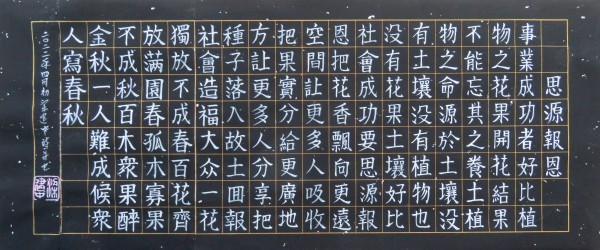 思源報恩
事業成功者好比植
物之成果開花結果
不能忘其之養土植
物之命源於土壤沒
有土壤沒有植物也
沒有花果土壤好比
社會成功要思源報
恩把花香飄向更遠
空間讓更多人吸收
把果實分給更廣地
方讓更多人分享把
種子落入故土囬報
社會造福大眾一花
獨放不成春百花齊
放滿園春孤木寡果
不成秋百木衆果醉
金秋一人難成候衆
人寫春秋
二〇二二年四月初